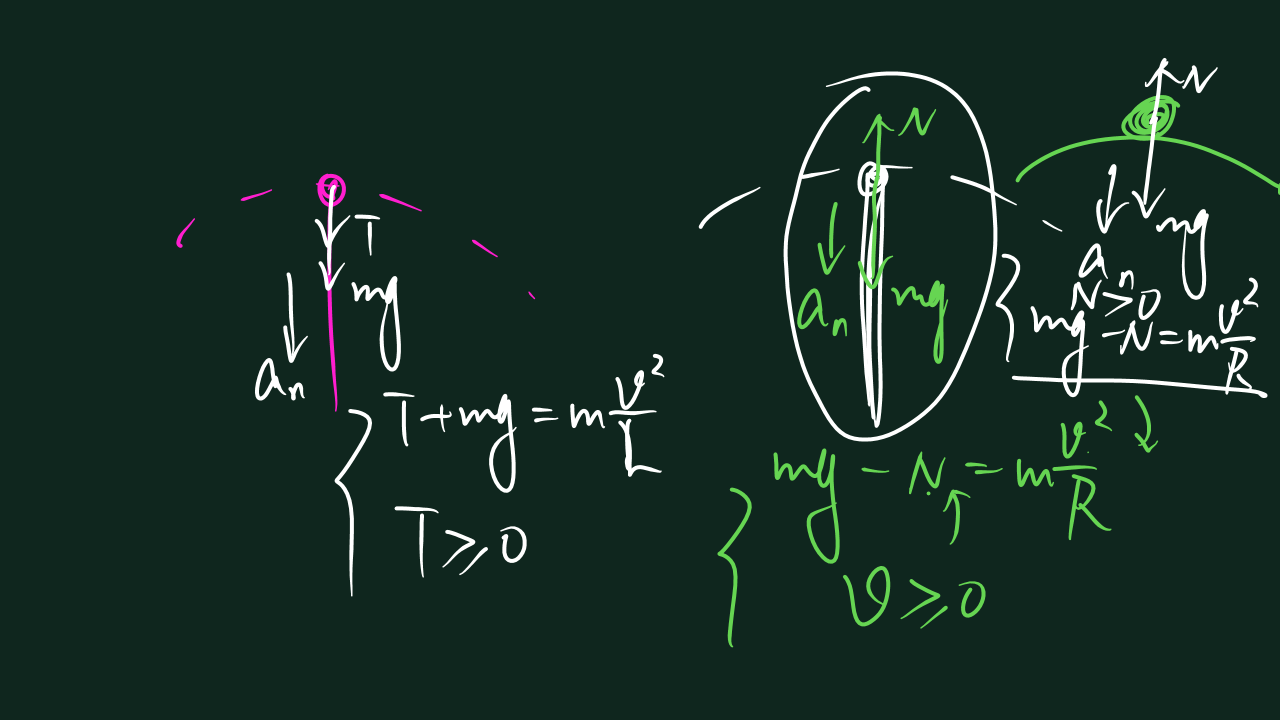 T
mg
aₙ
T+mg=m v²/L
T⩾0
N
aₙ
mg
mg-N=m v²/R
v⩾0
N
mg
aₙ
N>0
mg-N=m v²/R